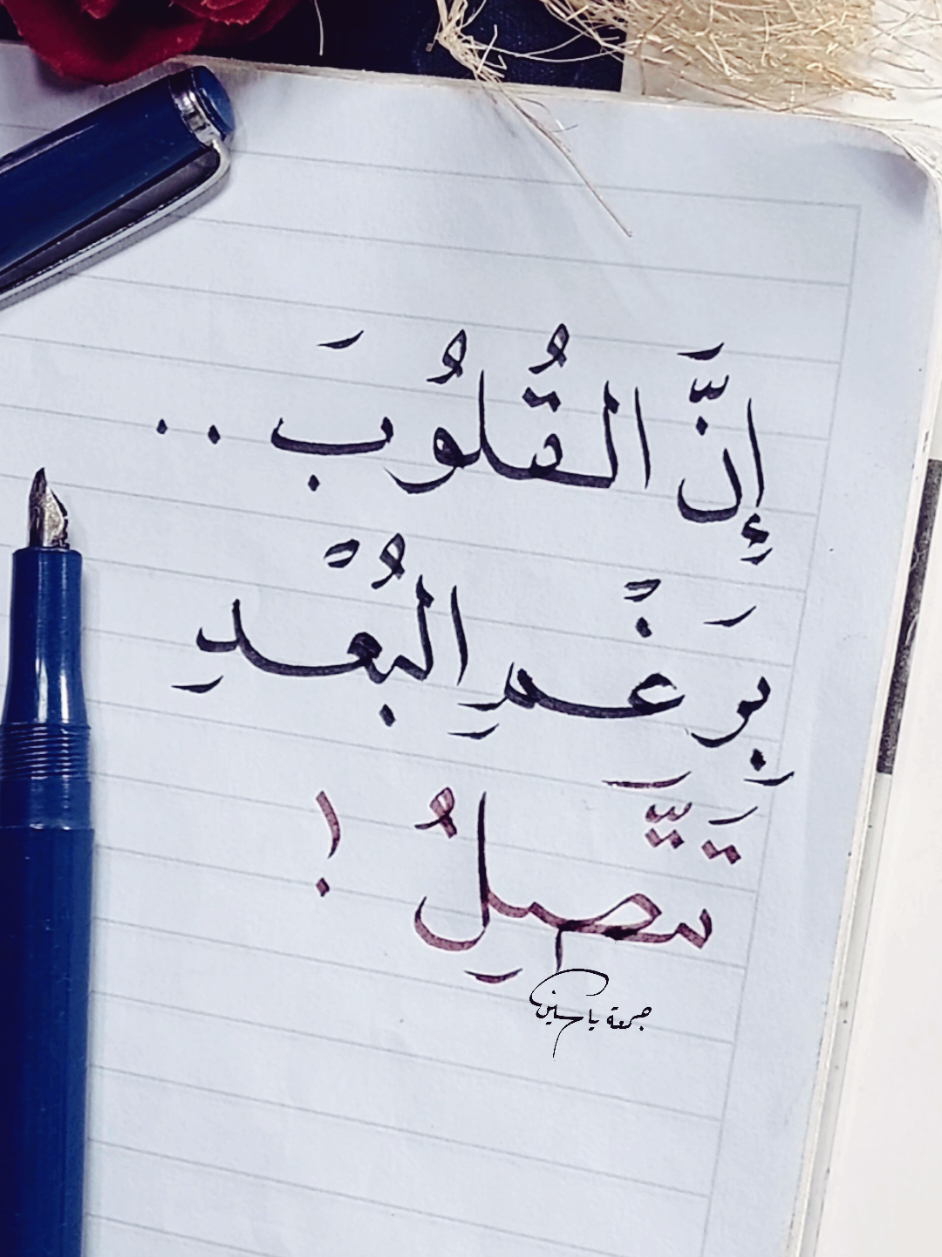 إِنَّ القُلُوبَ ..
بِرَغْمِ البُعْدِ
تَتَّصِلُ !
جمعة ياسين